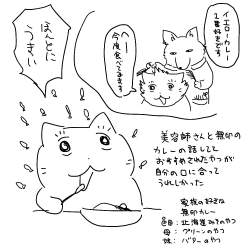 イエローカレー
1番好きです
へー
今度食べてみます
ほんとに
うまい
美容師さんと無印の
カレーの話してて
おすすめされたやつが
自分の口に合って
うれしかった
家族の好きな
無印カレー
母：グリーンのやつ
妹：バターのやつ